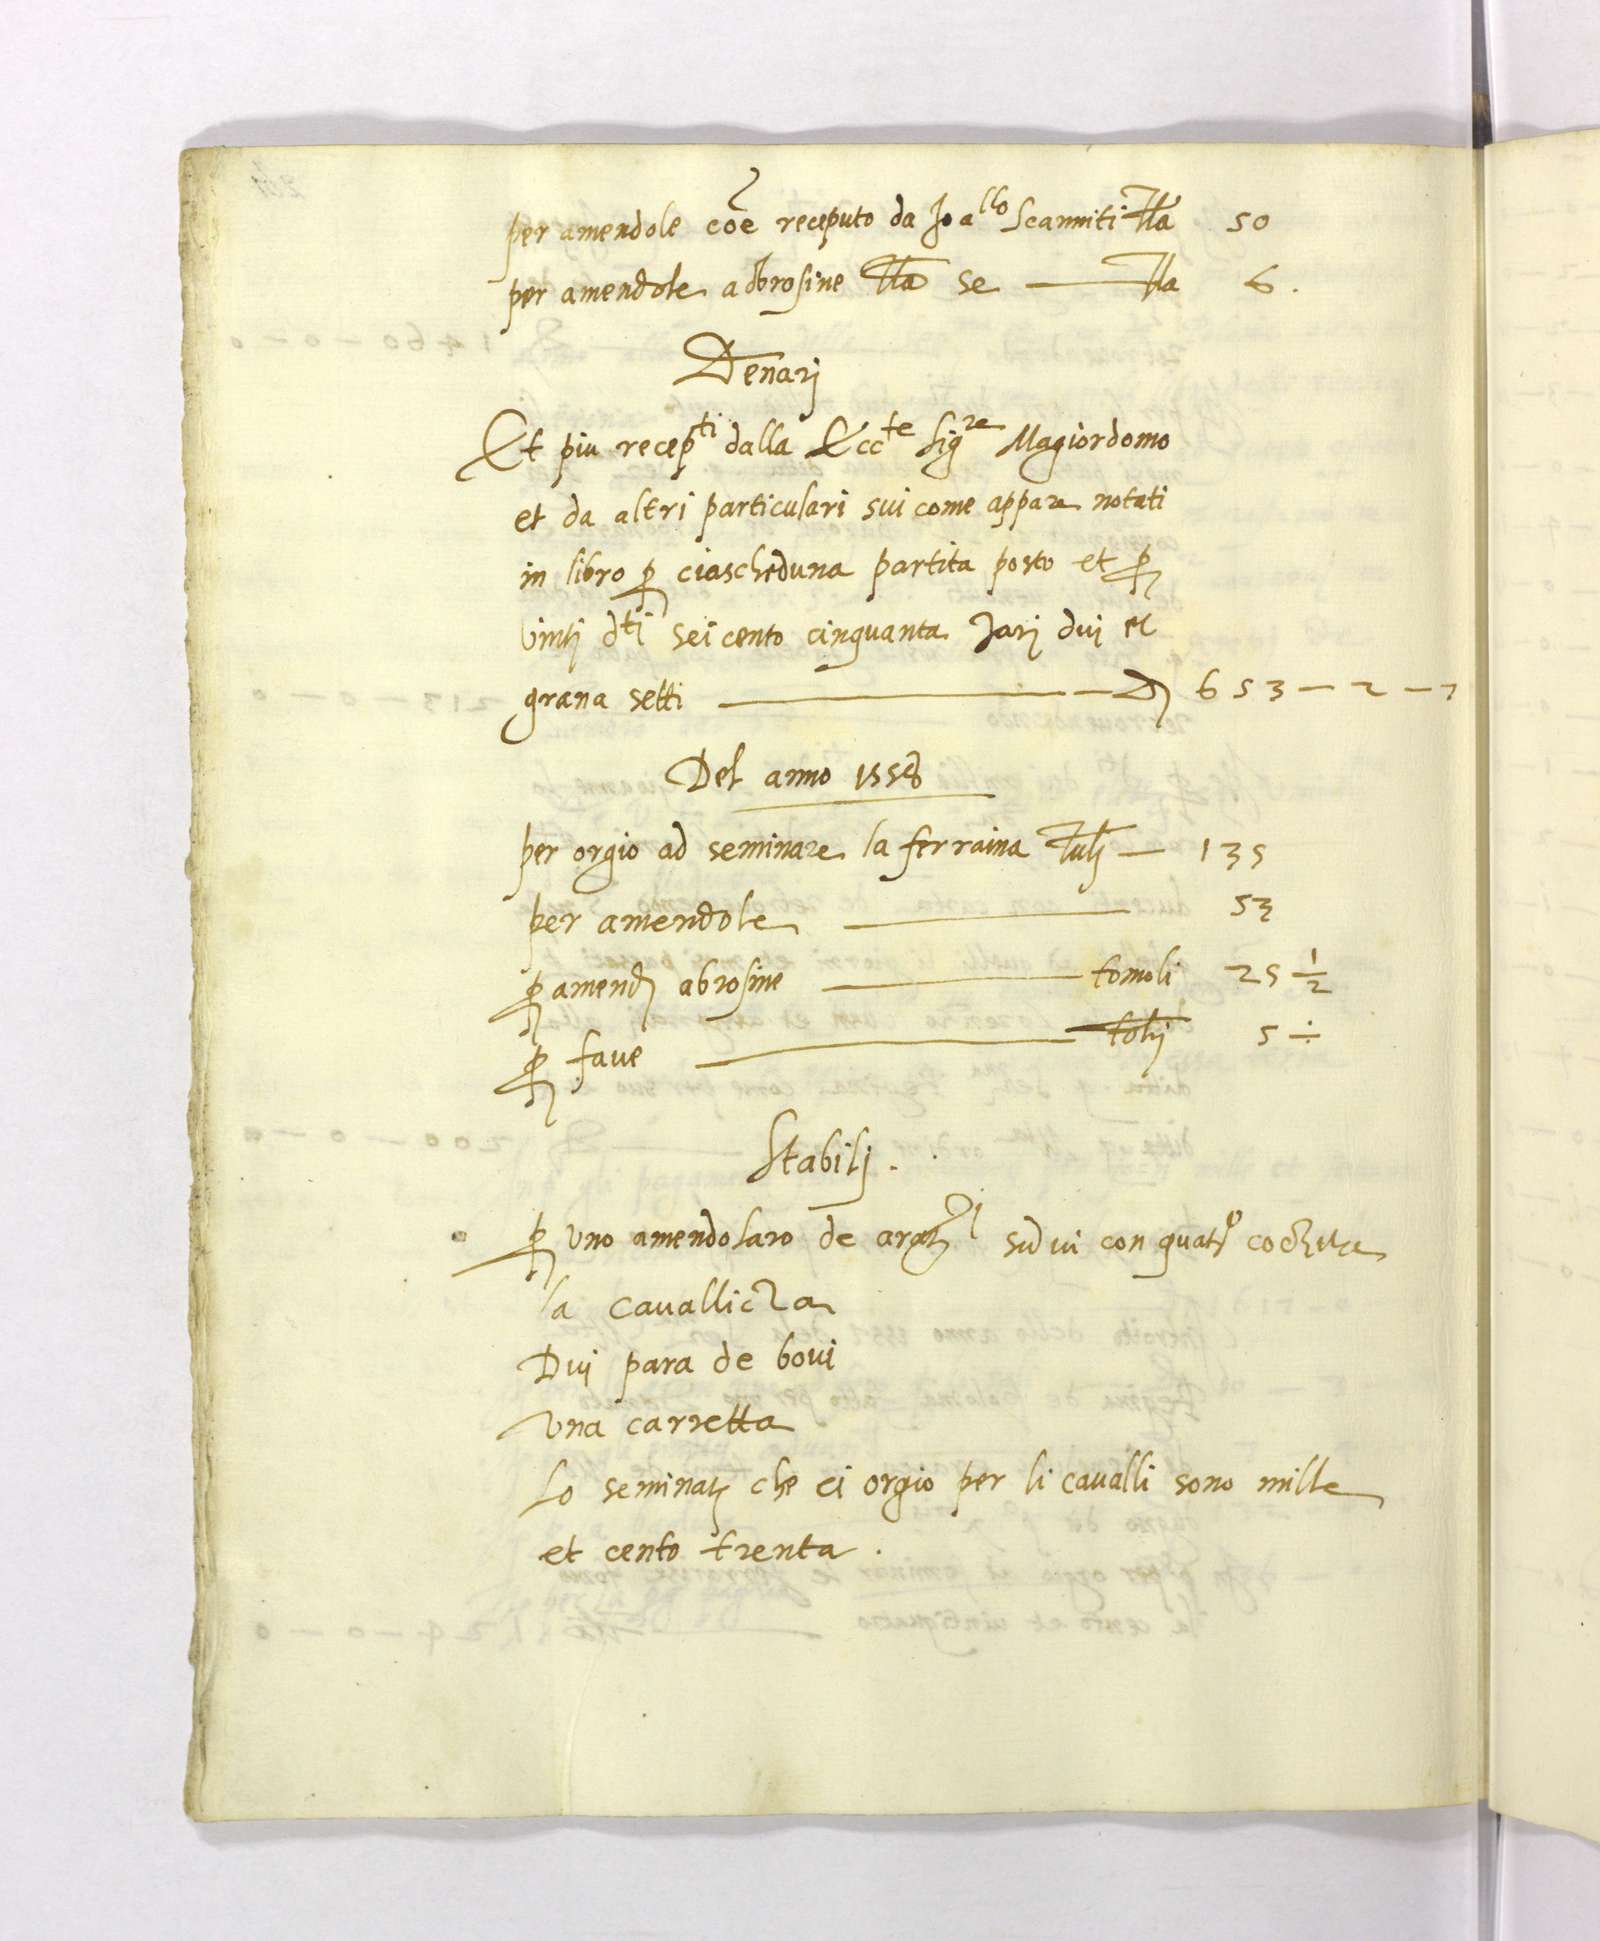 per amendole coe receputo da Jo allo Scanniti tla 50
per amendole abrosine tla se tla 6.
Denarj
Et piu recepti dalla Eccte sigre Magiordomo
et da altri particulari sui come appare notati
in libro p ciascheduna partita posto et p
dti sei cento cinquanta tarj dui et
grana setti 653 — 2 — 7
Del anno 1558
per orgio ad seminare la ferraina tulj — 135
per amendole 53
p amend abrosine tomoli 25 1/2
p fave tolj 5 ÷
Stabilj.
p uno amendolaro de con quatro
la cavallicza
Dui para de boui
una carretta
Lo seminatj che ei orgio per li cavalli sono mille
et cento trenta.